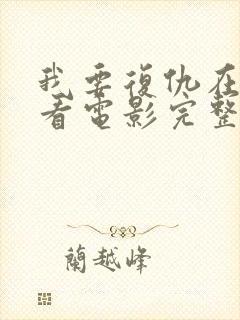 我要復仇在
看電影完整
蘭越峰